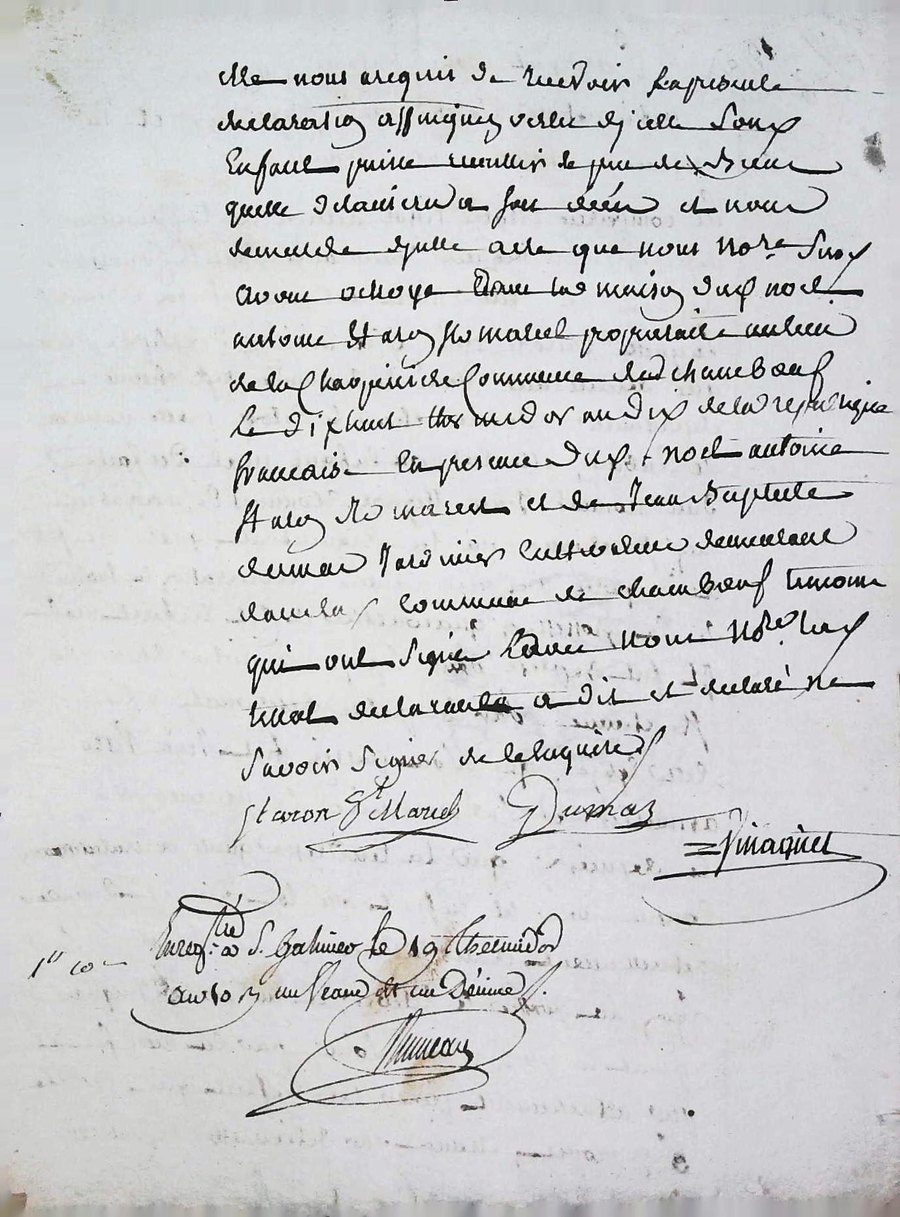 elle nous a requis de recevoir la presente
declaration affin qu'en vertu d'icelle son d.
Enfant puisse recueillir le peu de Biens
quelle delaissera a son décés et nous
demande du tout acte que nous No.re Susd.
avons octroyé dans la maison dud. noel
antoine Staron St marcel proprietaire au lieu
de la Commune dud. chambœuf
Le dix huit thermidor an dix de la republique
francaise En presence dud. noel antoine
Staron St marcel et de Jean Baptiste
dumas Jardinier cultivateur demeurant
dans lad. commune de chambœuf temoins
qui ont signé avec nous No.re lad.
declarante a dit et declaré ne
Savoir Signer de ce Enquise
Staron St Marcel Dumas
Enreg.tré a S. Galmier le 19 thermidor
an 10 R un franc et un Décime